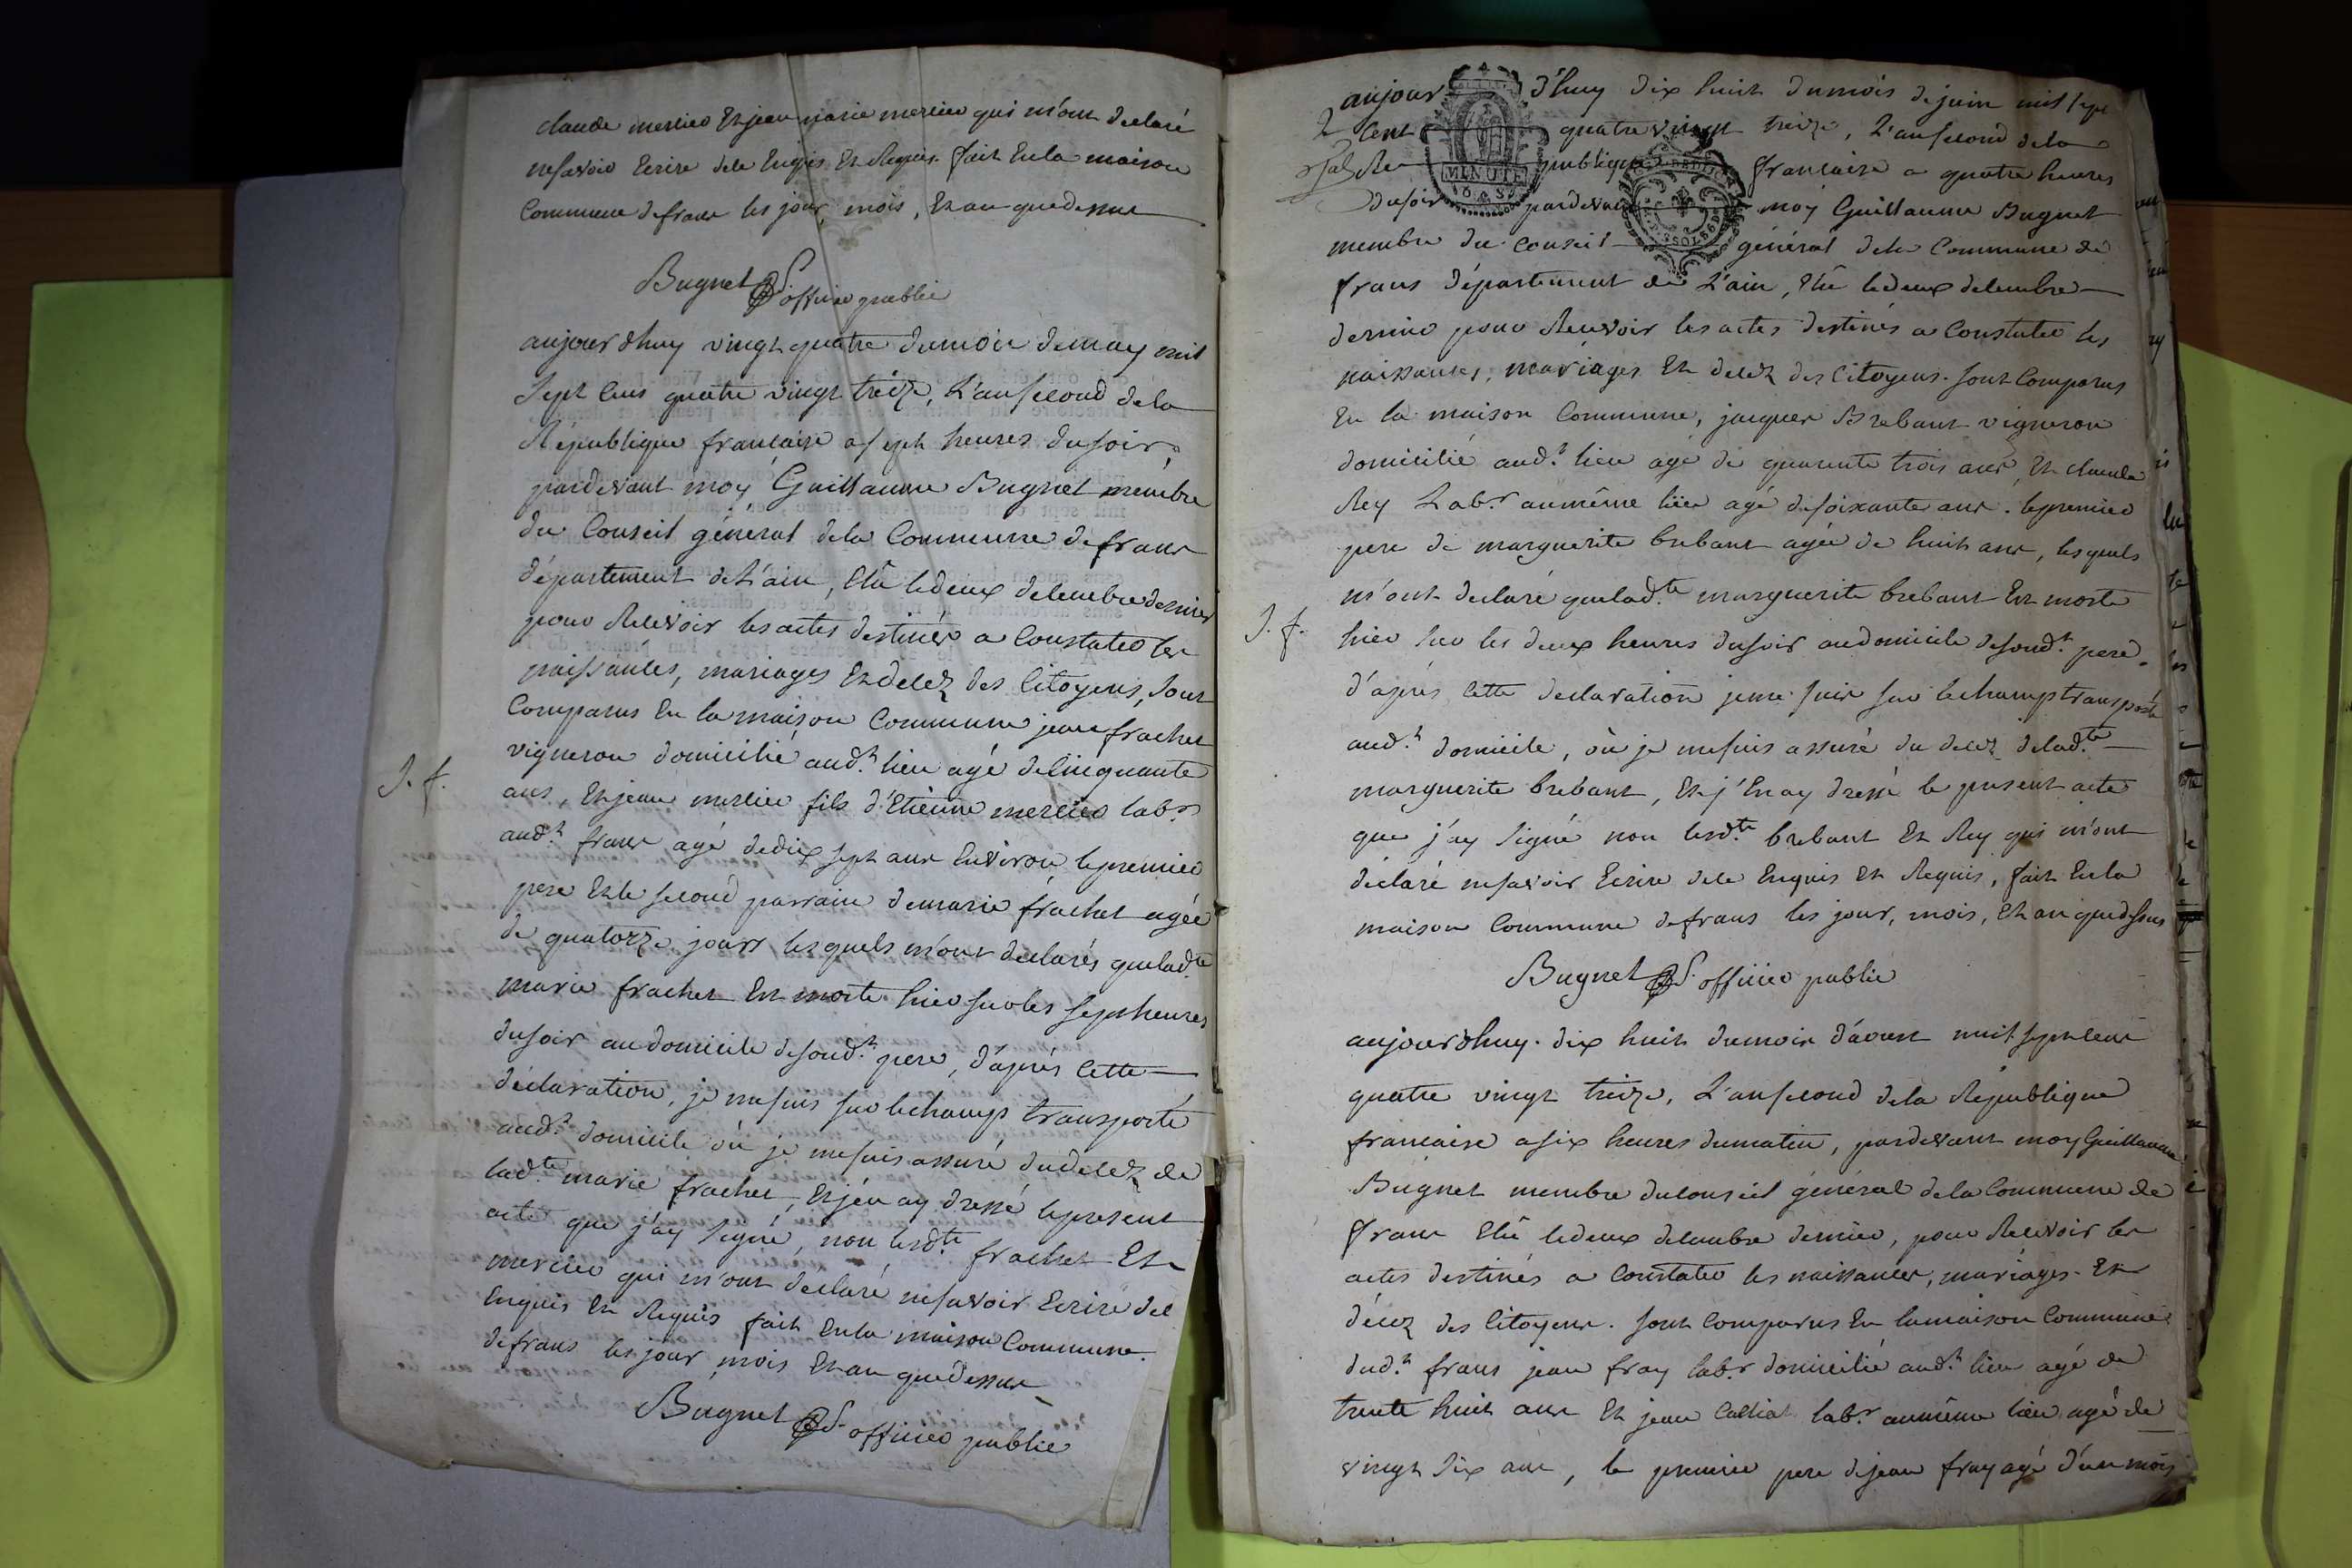 claude mercier Et jean marie mercier qui m'ont declaré
ne savoir Ecrire de ce Enquis Et Requis. fait En la maison
Commune de frans les jour, mois, Et an que dessus
Bugnet officier public
aujourdhuy vingt quatre du mois de may mil
Sept Cens quatre vingt tréize, L'an second de la
République francaise a sept heures du soir,
pardevant moy Guillaume Bugnet membre
du Conseil géneral de la Commune de frans
département de L'ain, Elû le deux decembre dernier
pour Recevoir les actes destinés a Constater les
naissances, mariages Et decez des Citoyens, Sont
Comparus En la maison Commune jean frachet
vigneron domicilié aud.t lieu agé de Cinquante
J. f.
ans, Et jean mercier fils d'Etienne mercier lab.r
aud.t frans agé de dix sept ans Environ, le premier
pere Et le second parrain de marie frachet agée
de quatorze jours lesquels m'ont declarés que lad.te
marie frachet Est morte hier sur les sept heures
du soir au domicile de sond.t pere, d'aprés Cette
déclaration, je me suis sur le champ transporté
aud.t domicile où je me suis assuré du decez de
lad.te marie frachet, Et j'en ay dressé le present
acte que j'ay signé, non lesd.ts frachet Et
mercier qui m'ont declaré ne savoir Ecrire de ce
Enquis Et Requis fait En la maison Commune
de frans les jour, mois Et an que dessus
Bugnet officier public
aujour d'huy dix huit du mois de juin mil sept
Cent quatre vingt treize, L'an second de la
Re publique francaise a quatre heures
MINUTE
du soir pardevant moy Guillaume Bugnet
membre du Conseil général de la Commune de
frans département de L'ain, Elû le deux decembre
dernier pour Recevoir les actes destinés a Constater les
naissances, mariages Et decez des Citoyens. sont Comparus
En la maison Commune, jacques Brebant vigneron
domicilié aud.t lieu agé de quarente trois ans, Et claude
Rey Lab.r au même lieu agé de soixante ans. le premier
pere de marguerite brebant agée de huit ans, lesquels
m'ont declaré que lad.te marguerite brebant Est morte
J. f.
hier sur les deux heures du soir au domicile de sond.t pere,
d'aprés Cette declaration je me suis sur le champ transporté
aud.t domicile, où je me suis assuré du decez de lad.te
marguerite brebant, Et j'En ay dressé le present acte
que j'ay signé non lesd.ts brebant Et Rey qui m'ont
déclaré ne savoir Ecrire de ce Enquis Et Requis, fait En la
maison Commune de frans les jour, mois, Et an que dessus
Bugnet officier public
aujourdhuy dix huit du mois d'aoust mil sept cent
quatre vingt treize, L'an second de la République
francaise a six heures du matin, pardevant moy Guillaume
Bugnet membre du Conseil général de la Commune de
frans Elû le deux decembre dernier, pour Recevoir les
actes destinés a Constater les naissances, mariages Et
décez des Citoyens. sont Comparus En la maison Commune
dud.t frans jean fray lab.r domicilié aud.t lieu agé de
trente huit ans Et jean Calliat lab.r au même lieu agé de
vingt six ans, le premier pere de jean fray agé d'un mois